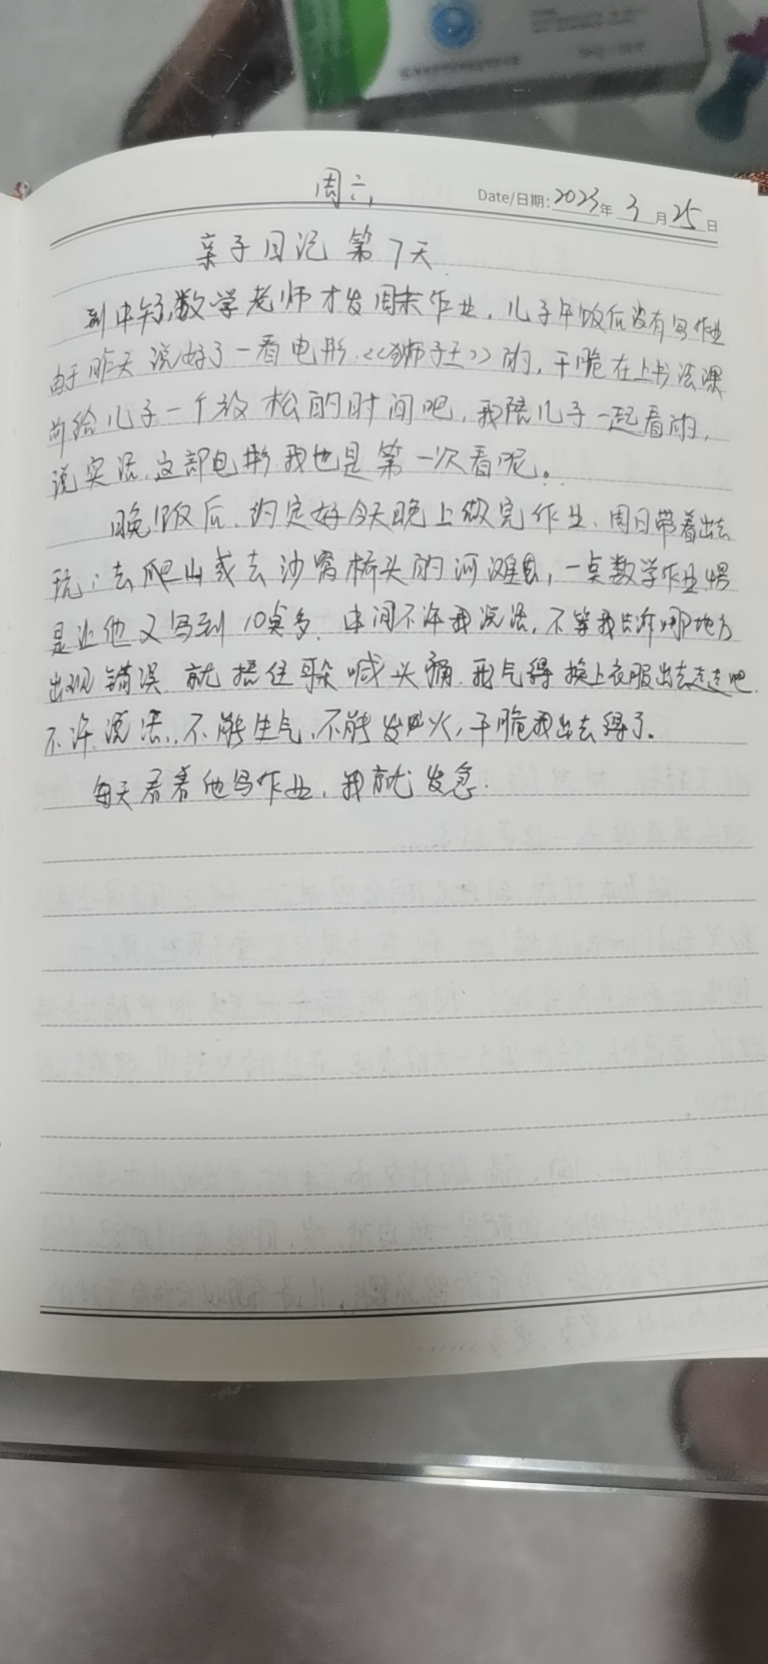 周六
Date/日期: 2023年 3月 25日
亲子日记 第7天
到中午了,数学老师才发周末作业,儿子午饭后没有写作业
由于昨天说好了一看电影《狮子王》的,干脆在上书法课
前给儿子一个放松的时间吧,我陪儿子一起看的,
说实话,这部电影我也是第一次看呢。
晚饭后,约定好今天晚上做完作业,周日带着出去
玩:去爬山或去沙窝桥头的河滩,一点数学作业愣
是让他又写到10点多,中间不许我说话,不等我告诉哪地方
出现错误 就捂住耳朵喊头痛,我气得换上衣服出去走走吧
不许说话,不能生气,不能发火,干脆我出去得了.
每天看着他写作业,我就发急.